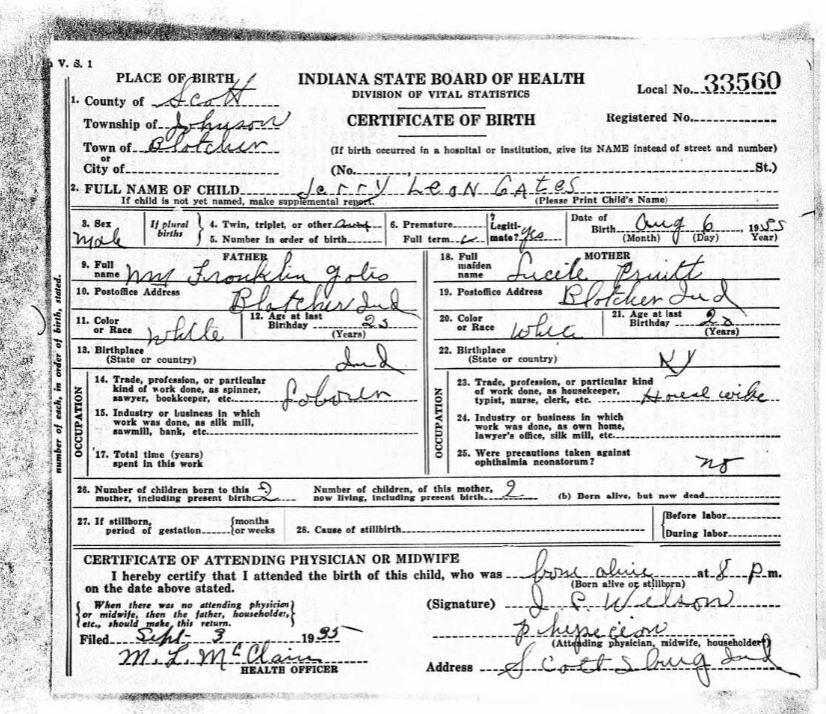 V. S. 1
PLACE OF BIRTH
INDIANA STATE BOARD OF HEALTH
DIVISION OF VITAL STATISTICS
Local No. 33560
1. County of Scott
CERTIFICATE OF BIRTH
Registered No.
Township of Johnson
Town of Blotcher
or
City of
(If birth occurred in a hospital or institution, give its NAME instead of street and number)
(No. St.)
2. FULL NAME OF CHILD Jerry Leon Gates
If child is not yet named, make supplemental report. (Please Print Child's Name)
3. Sex Male
If plural births
4. Twin, triplet, or other
5. Number in order of birth
6. Premature
Full term
7 Legitimate? Yes
Date of Birth Aug 6, 1935
(Month) (Day) Year)
number of each, in order of birth, stated.
FATHER
9. Full name Franklin
10. Postoffice Address Blotcher Ind
11. Color or Race White
12. Age at last Birthday
(Years)
13. Birthplace (State or country) Ind
OCCUPATION
14. Trade, profession, or particular kind of work done, as spinner, sawyer, bookkeeper, etc. Laborer
15. Industry or business in which work was done, as silk mill, sawmill, bank, etc.
17. Total time (years) spent in this work
MOTHER
18. Full maiden name Lucile Pruitt
19. Postoffice Address Blotcher Ind
20. Color or Race
21. Age at last Birthday
(Years)
22. Birthplace (State or country) KY
OCCUPATION
23. Trade, profession, or particular kind of work done, as housekeeper, typist, nurse, clerk, etc. House wife
24. Industry or business in which work was done, as own home, lawyer's office, silk mill, etc.
25. Were precautions taken against ophthalmia neonatorum? no
26. Number of children born to this mother, including present birth 2
Number of children, of this mother, now living, including present birth 2
(b) Born alive, but now dead
27. If stillborn, period of gestation {months or weeks
28. Cause of stillbirth
{Before labor
During labor
CERTIFICATE OF ATTENDING PHYSICIAN OR MIDWIFE
I hereby certify that I attended the birth of this child, who was born alive at 8 P m.
on the date above stated. (Born alive or stillborn)
{When there was no attending physician or midwife, then the father, householder, etc., should make this return.}
(Signature) J P. Wilson
Filed Sept 3 1935
physicion
(Attending physician, midwife, householder)
M. L. McClain
HEALTH OFFICER
Address Scottsburg Ind